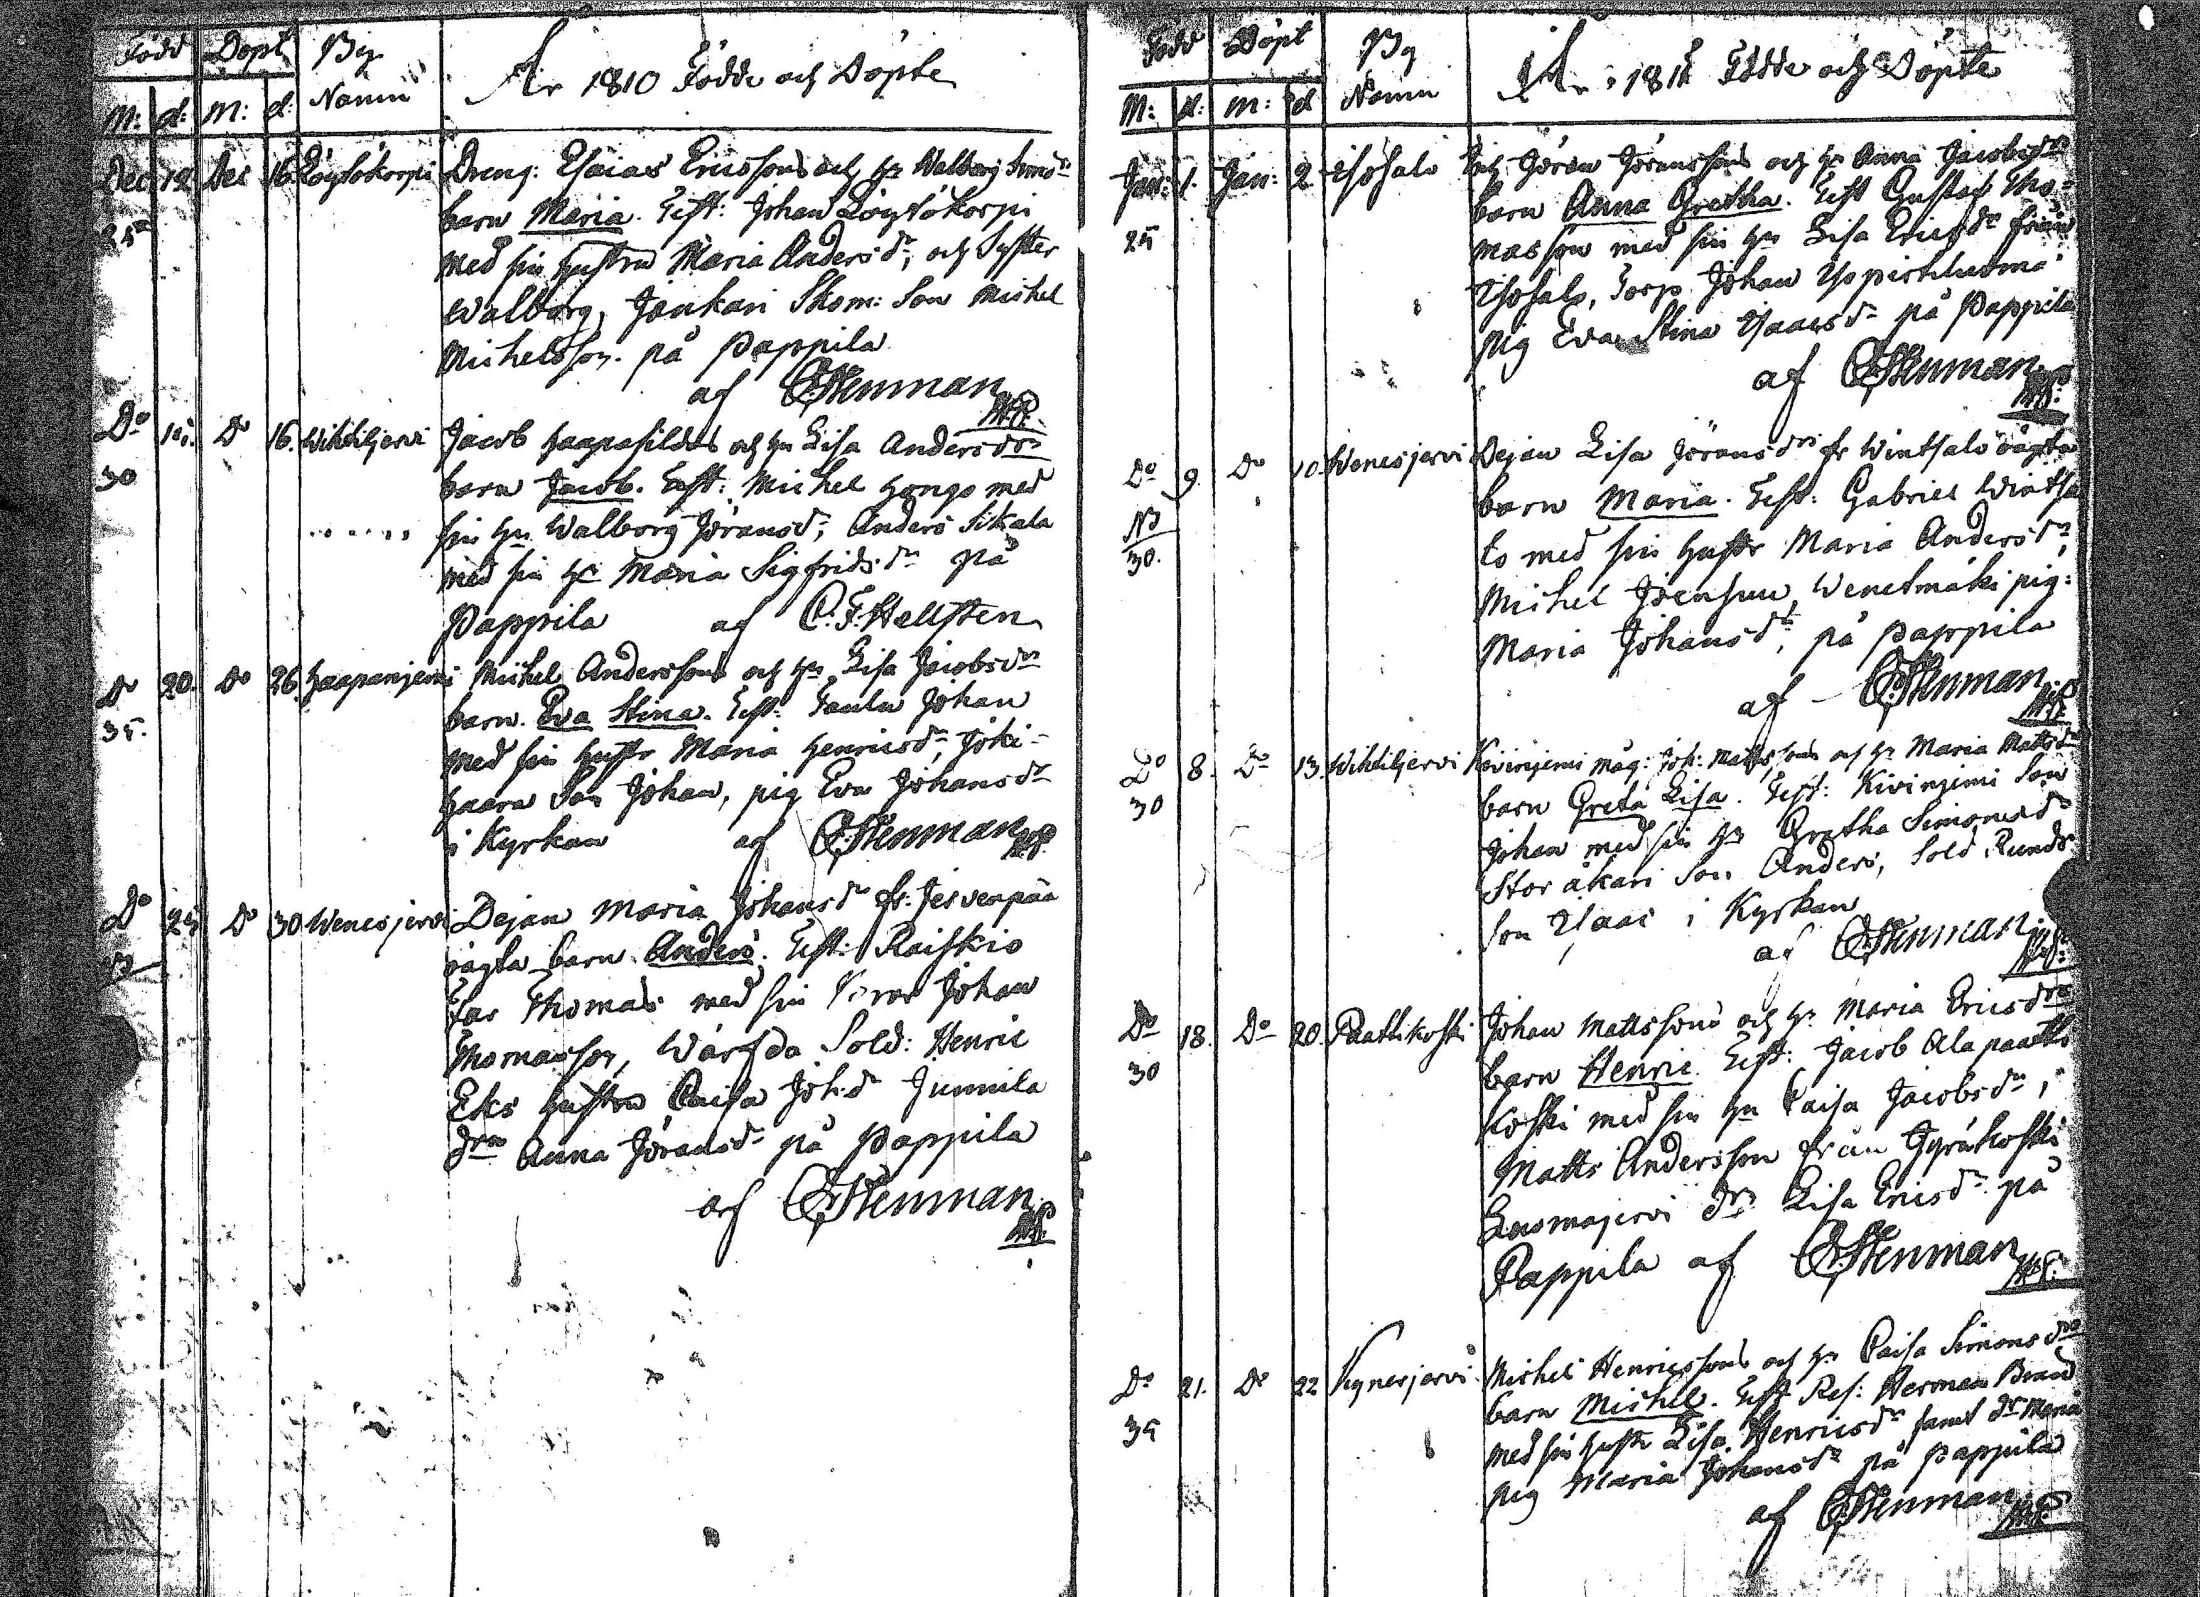 Född Döpt By Namn År 1810 Födde och Döpte
M: d: M: d:
Dec 12 Dec 16 Löytökorpi Dreng: Esaias Ericssons och hu Walborg Simsdr
25 barn Maria. Test: Johan Löytökorpi
med sin hustru Maria Andersdr, och Syster
Walborg, Junkari Skom: Son Michel
Michelsson. på Pappila
af Stenman
Do Do 16. Wihtiljervi Jacob Haapasildas och hu Lisa Andersdrs
30 barn Jacob. Test: Michel Hongo med
sin hu Walborg Jöransdr, Anders Sikala
med sin hu Maria Sigfridsdr på
Pappila af C. F. Hellsten
Do 20. Do 26 Haapanjemi Michel Anderssons och hu Lisa Jacobsdrs
35. barn. Eva Stina. Test: Johan
med sin hustr Maria Henricsdr, Joki-
haara Son Johan, pig Eva Johansdr
i Kyrkan af Stenman
Do 25 Do 30 Wenesjervi Dejan Maria Johansdr fr: Jervenpää
oägta barn Anders. Test: Raiskio
Far Thomas med sin Johan
Thomasson, Sold: Henric
Eks hustru Caisa Johsdr Junnila
drn Anna Jöransdr på Pappila
af Stenman
Född Döpt By Namn År 1811 Födde och Döpte
M: d: M: d
Jan: 1. Jan: 2 Isosalo Jöran Jöranssons och hu Anna Jacobsdrs
25 barn Anna Gretha. Test Gustaf Tho-
masson med sin hu Lisa Ericsdr från
Isosalo, Torp Johan
pig Eva Stina Isaacsdr på Pappila
af Stenman
Do 9. Do 10. Wenesjervi Dejan Lisa Jöransdrs fr Wintsalo oägta
NB barn Maria. Test: Gabriel
30. to med sin hustr Maria Andersdr,
Michel Joensuu, Wenetmäki pig:
Maria Johansdr, på Pappila
af Stenman
Do 8. Do 13 Wihtiljervi Kivinjemi måg: Joh: Mattssons och hu Maria Mattsdr
30 barn Greta Lisa. Test: Kivinjemi Son
Johan med sin hu Gretha Simonsdr
Storåkari Son Anders, Sold
son Isaac i Kyrkan
af Stenman
Do 18. Do 20. Paattikoski Johan Mattssons och hu Maria Ericsdrs
30 barn Henric. Test: Jacob Alapaatti
koski med sin hu Caisa Jacobsdr,
Matts Andersson från Jyräkoski
Lusmajervi drn Lisa Ericsdr på
Pappila af Stenman
Do 21. Do 22 Kynesjervi Michel Henricssons och hu Caisa Simonsdrs
35 barn Michel. Test Ref: Herman Brand
med sin hustr Lisa Henricsdr samt dr Maria
pig Maria Johansdr på Pappila
af Stenman